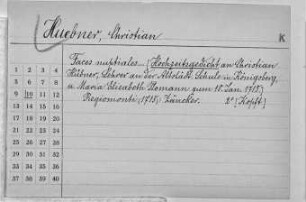 Huebner, Christian
K
Faces nuptiales... [Hochzeitsgedicht an Christian
Hübner, Lehrer an der Altstädt. Schule in Königsberg,
u. Maria Elisabeth Homann zum 18. Jan. 1718.]
Regiomonti: (1718) Zäncker. 2° [Kopft.]
1 2 3 4
5 6 7 8
9 10 11 12
13 14 15 16
17 18 19 20
21 22 23 24
25 26 27 28
29 30 31 32
33 34 35 36
37 38 39 40